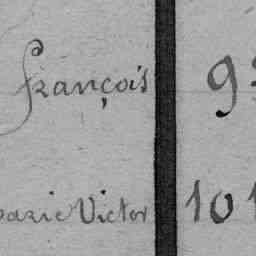 françois 93
Marie Victor 101